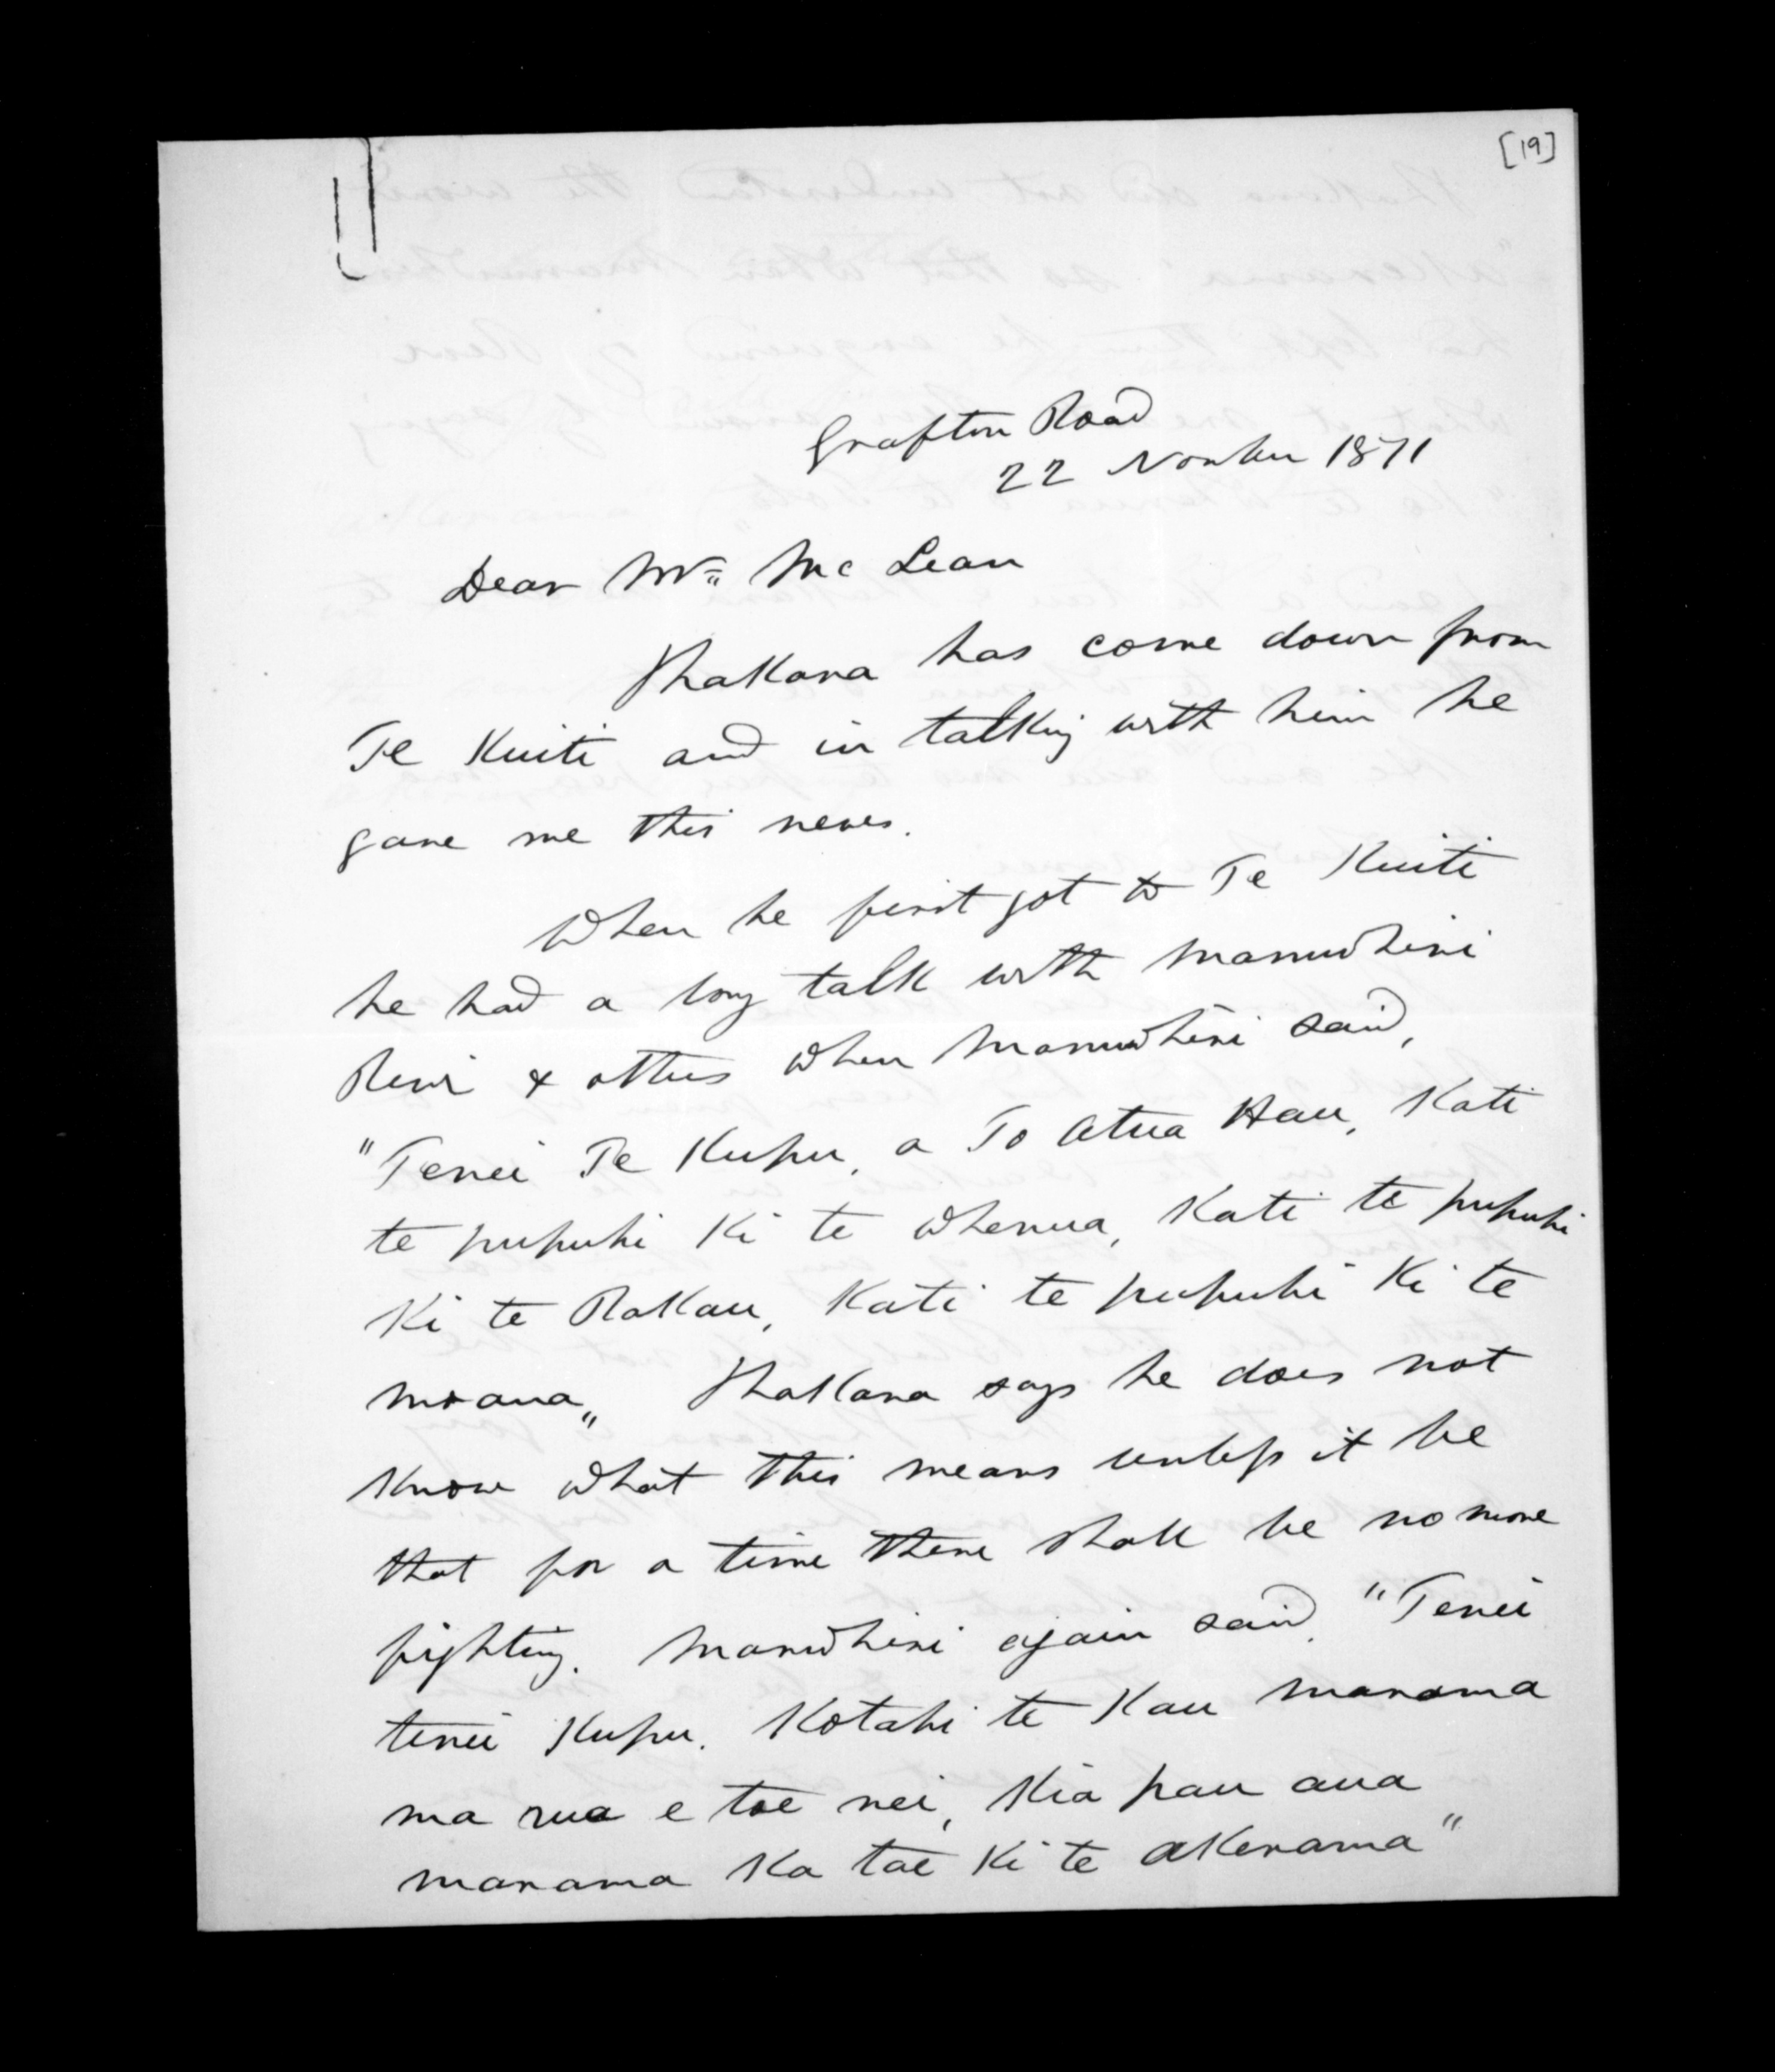 [19]
Grafton Road
22 November 1871
Dear Mr. McLean
Phakana has come down from
Te Kuiti and in talking with him he
gave me this news.
When he first got to Te Kuiti
he had a long talk with Manuwhiri
Rewi & others when Manuwhiri said,
"Tenei Te Kupu, a To Atua Hau, Kati
te pupuhi Ki te Whenua, Kati te pupuhi
Ki te Rakau, Kati te pupuhi Ki te
moana" Phakana says he does not
know what this means unless it be
that for a time there shall be no more
fighting. Manuwhiri again said, "Tenei
tenei Kupu. Kotahi te Kau marama
ma rua e toe nei, Kia pau aua
marama Ka tae Ki te Akerama"